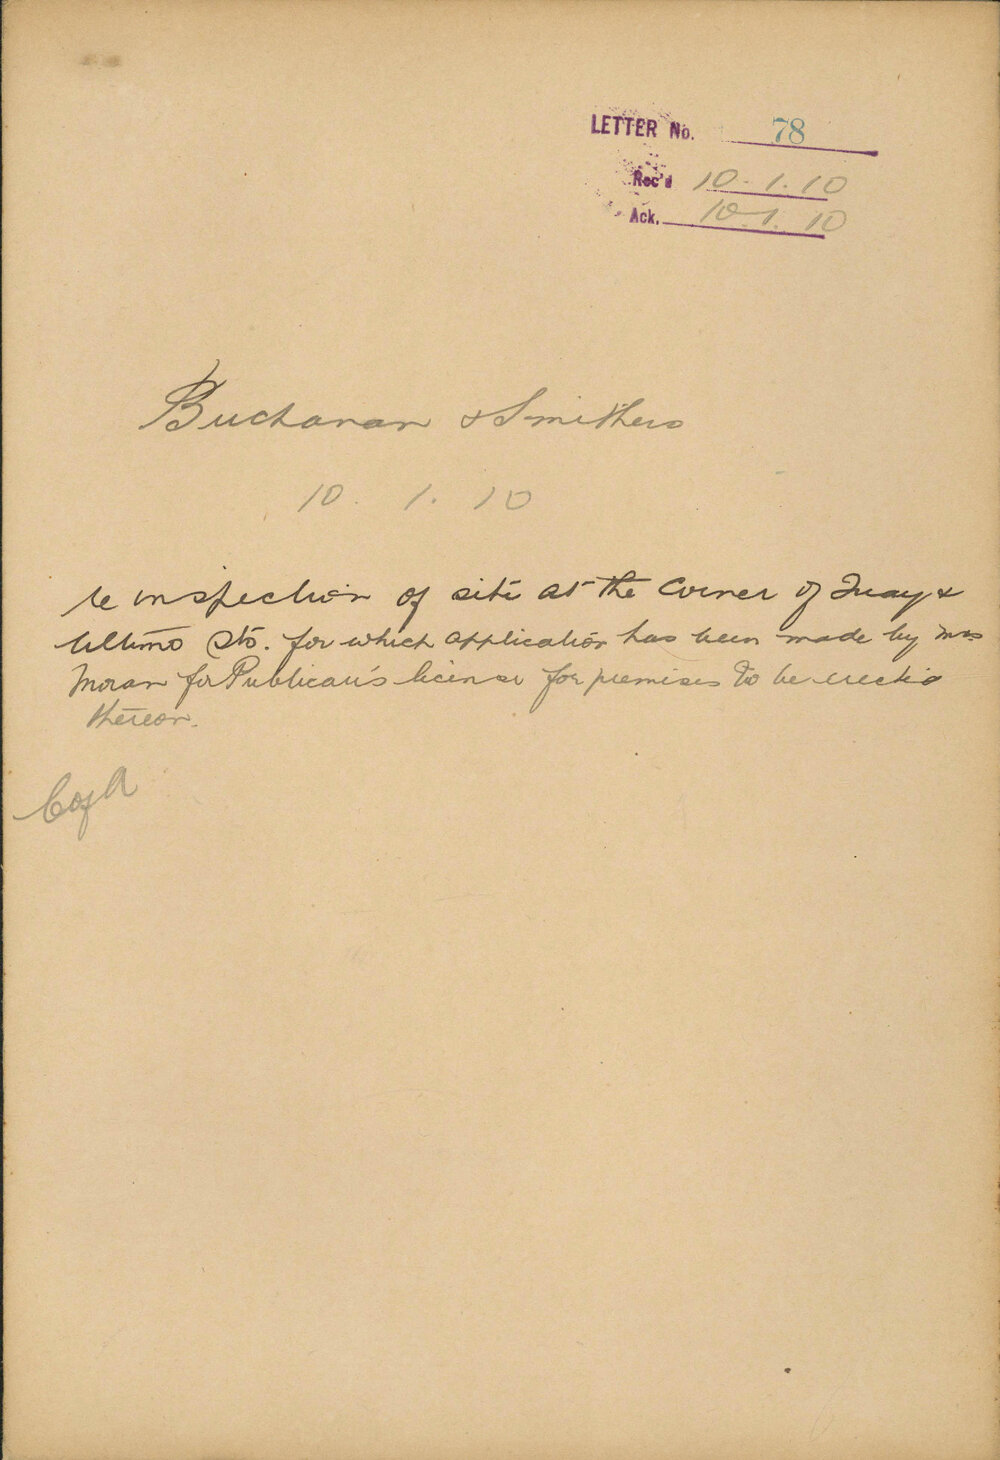 LETTER No. 78
Rec'd 10.1.10
Ack. 10.1.10
Buchanan & Smithers
10. 1. 10
re inspection of site at the corner of Quay &
Ultimo Sts. for which application has been made by Mrs
Moran for Publican's license for premises to be erected
thereon.
C of A